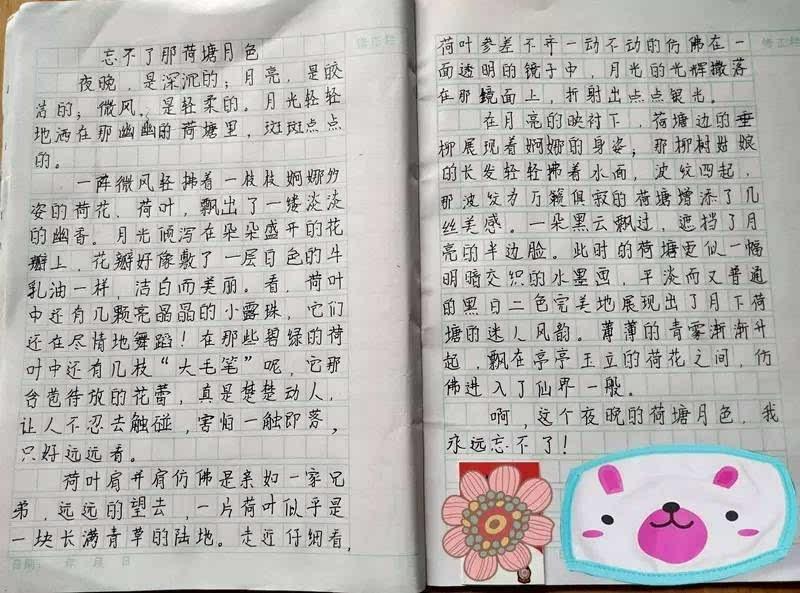 忘不了那荷塘月色
夜晚，是深沉的；月亮，是皎
洁的；微风，是轻柔的。月光轻轻
地洒在那幽幽的荷塘里，斑斑点点
的。
一阵微风轻拂着一枝枝婀娜多
姿的荷花、荷叶，飘出了一缕淡淡
的幽香。月光倾泻在朵朵盛开的花
瓣上，花瓣好像敷了一层白色的牛
乳油一样，洁白而美丽。看，荷叶
中还有几颗亮晶晶的小露珠，它们
还在尽情地舞蹈！在那些碧绿的荷
叶中还有几枝“大毛笔”呢，它那
含苞待放的花蕾，真是楚楚动人，
让人不忍去触碰，害怕一触即落，
只好远远看。
荷叶肩并肩仿佛是亲如一家兄
弟，远远的望去，一片荷叶似乎是
一块长满青草的陆地。走近仔细看，
日期： 年 月 日
荷叶参差不齐一动不动的仿佛在一
面透明的镜子中，月光的光辉撒落
在那镜面上，折射出点点银光。
在月亮的映衬下，荷塘边的垂
柳展现着婀娜的身姿；那柳树姑娘
的长发轻轻拂着水面，波纹四起，
那波纹为万籁俱寂的荷塘增添了几
丝美感。一朵黑云飘过，遮挡了月
亮的半边脸。此时的荷塘更似一幅
明暗交织的水墨画，平淡而又普通
的黑白二色完美地展现出了月下荷
塘的迷人风韵。薄薄的青雾渐渐升
起，飘在亭亭玉立的荷花之间，仿
佛进入了仙界一般。
啊，这个夜晚的荷塘月色，我
永远忘不了！